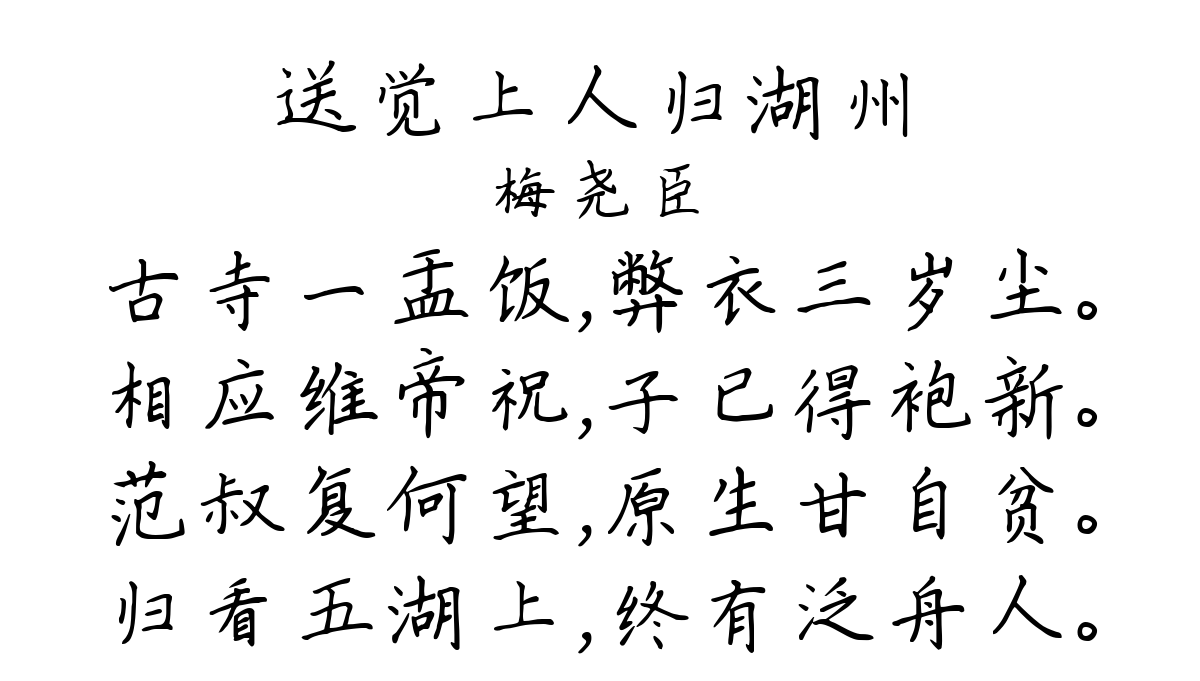 送觉上人归湖州
梅尧臣
古寺一盂饭,弊衣三岁尘。
相应维帝祝,子已得袍新。
范叔复何望,原生甘自贫。
归看五湖上,终有泛舟人。